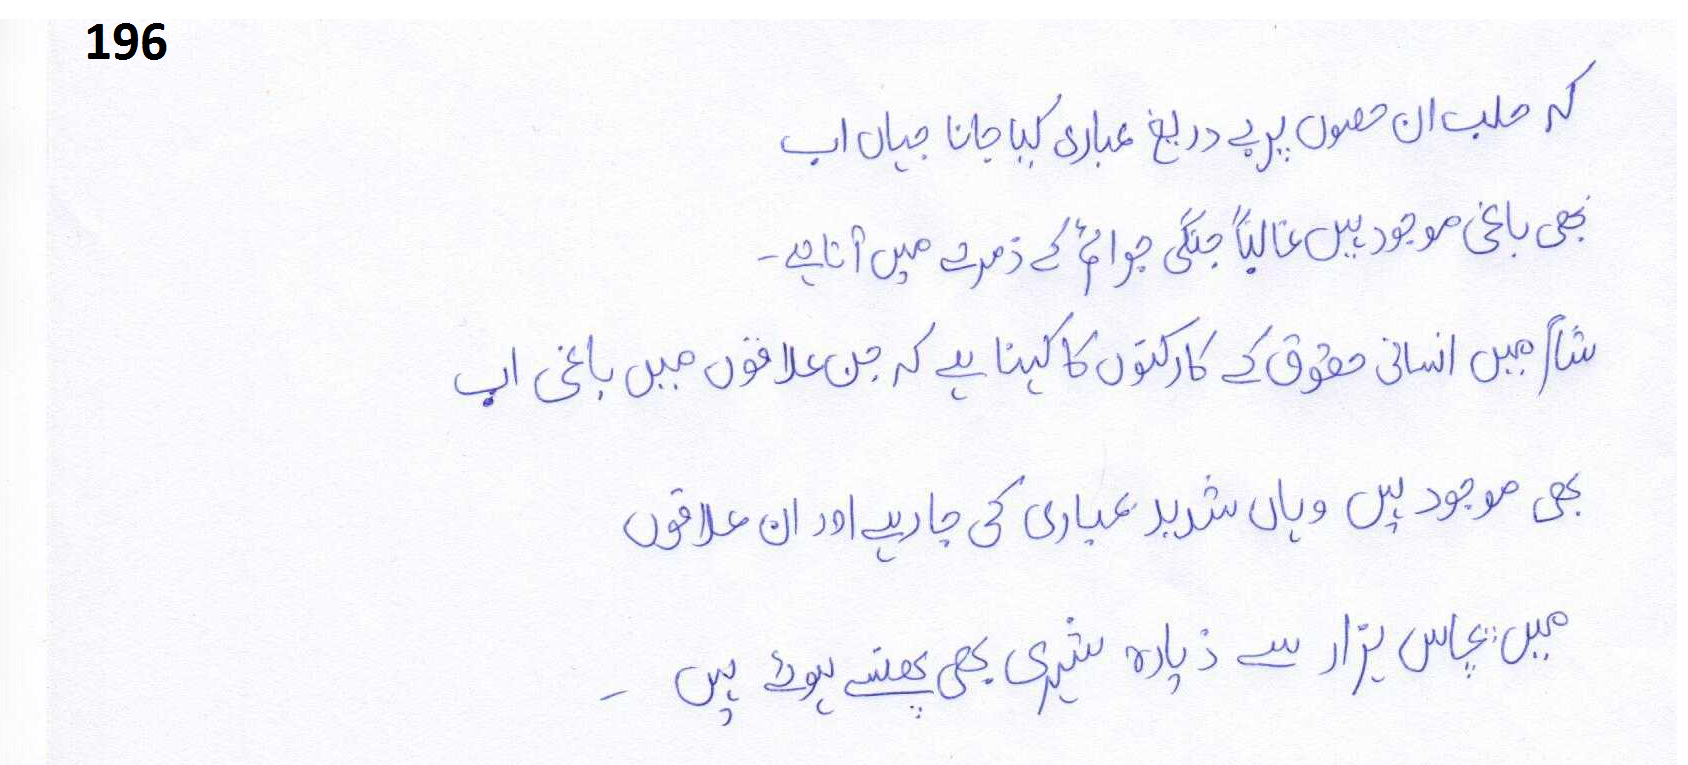 196
کہ حلب ان حصوں پر بے دریغ بمباری کیا جانا جہاں اب
بھی باغی موجود ہیں غالباً جنگی جرائم کے زمرے میں آتا ہے۔
شام میں انسانی حقوق کے کارکنوں کا کہنا ہے کہ جن علاقوں میں باغی اب
بھی موجود ہیں وہاں شدید بمباری کی جا رہی ہے اور ان علاقوں
میں پچاس ہزار سے زیادہ شہری بھی پھنسے ہوئے ہیں ۔